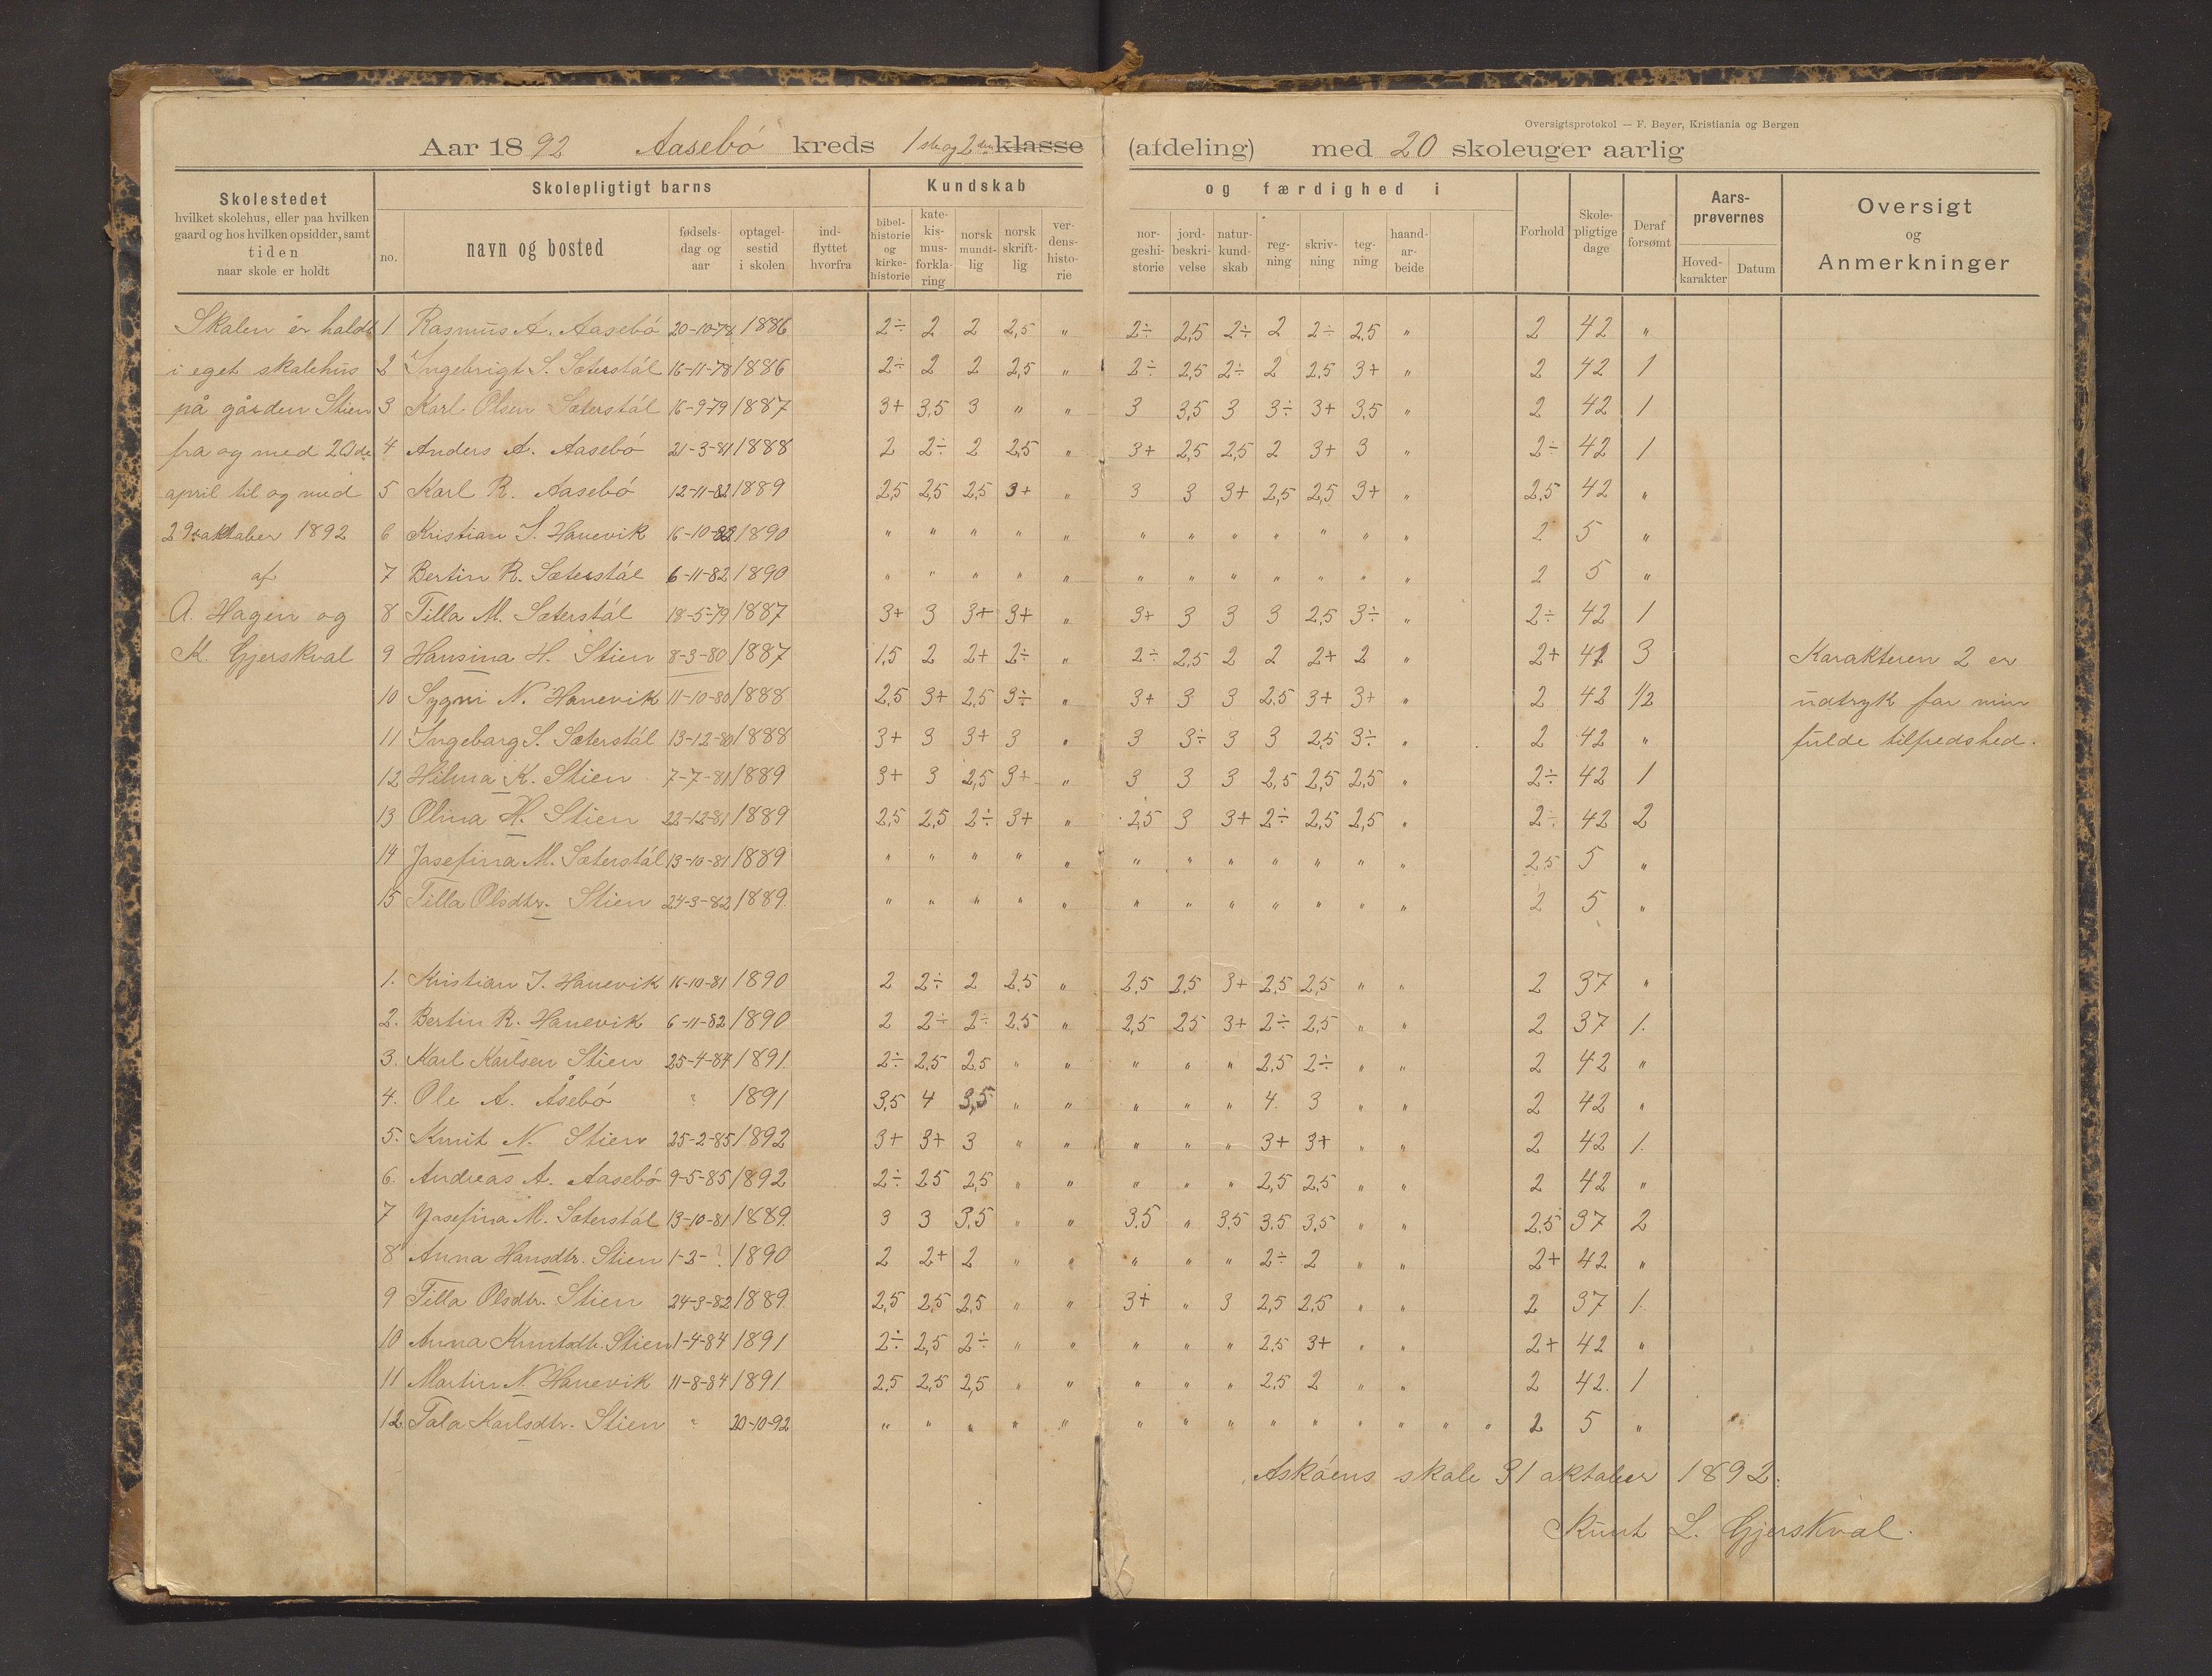 Oversigtsprotokol — F. Beyer, Kristiania og Bergen
Aar 1892 Aasebó kreds 1ste og 2den klasse (afdeling) med 20 skoleuger aarlig
Skolestedet
hvilket skolehus, eller paa hvilken
gaard og hos hvilken opsidder, samt
tiden
naar skole er holdt
Skolepligtigt barns
no.
navn og bosted
fødsels-
dag og
aar
optagel-
sestid
i skolen
ind-
flyttet
hvorfra
Kundskab og færdighed i
bibel-
historie
og
kirke-
historie
kate-
kis-
mus-
forkla-
ring
norsk
mundt-
lig
norsk
skrift-
lig
ver-
dens-
histo-
rie
nor-
geshi-
storie
jord-
beskri-
velse
natur-
kund-
skab
reg-
ning
skriv-
ning
teg-
ning
haand-
ar-
beide
Forhold
Skole-
pligtige
dage
Deraf
forsømt
Aars-
prøvernes
Hoved-
karakter
Datum
Oversigt
og
Anmerkninger
Skalen er haldt
i eget skalehus
på gården Stien
fra og med 20de
april til og med
29 aktaber 1892
af
A. Hagen og
K. Gjerskval
1 Rasmus A. Aasebó 20-10-78 1886 2÷ 2 2 2,5 " 2÷ 2,5 2÷ 2 2÷ 2,5 " 2 42 "
2 Ingebrigt S. Sæterstál 16-11-78 1886 2÷ 2 2 2,5 " 2÷ 2,5 2÷ 2 2,5 3+ " 2 42 1
3 Karl Olsen Sæterstál 16-9-79 1887 3+ 3,5 3 " " 3 3,5 3 3÷ 3+ 3,5 " 2 42 1
4 Anders A. Aasebó 21-3-81 1888 2 2÷ 2 2,5 " 3+ 2,5 2,5 2 3+ 3 " 2÷ 42 1
5 Karl R. Aasebó 12-11-82 1889 2,5 2,5 2,5 3+ " 3 3 3+ 2,5 2,5 3+ " 2,5 42 "
6 Kristian I. Hanevik 16-10-82 1890 " " " " " " " " " " " " 2 5 "
7 Bertin R. Sæterstál 6-11-82 1890 " " " " " " " " " " " " 2 5 "
8 Tilla M. Sæterstál 18-5-79 1887 3+ 3 3+ 3+ " 3+ 3 3 3 2,5 3÷ " 2÷ 42 1
9 Hansina H. Stien 8-3-80 1887 1,5 2 2+ 2÷ " 2÷ 2,5 2 2 2+ 2 " 2+ 42 3
10 Sygni N. Hanevik 11-10-80 1888 2,5 3+ 2,5 3÷ " 3+ 3 3 2,5 3+ 3+ " 2 42 1/2
11 Ingebarg S. Sæterstál 13-12-80 1888 3+ 3 3+ 3 " 3 3÷ 3 3 2,5 3÷ " 2 42 "
12 Hilma K. Stien 7-7-81 1889 3+ 3 2,5 3+ " 3 3 3 2,5 2,5 2,5 " 2÷ 42 1
13 Olina H. Stien 22-12-81 1889 2,5 2,5 2÷ 3+ " 2,5 3 3+ 2÷ 2,5 2,5 " 2÷ 42 2
14 Jasefina M. Sæterstál 13-10-81 1889 " " " " " " " " " " " " 2,5 5 "
15 Tilla Olsdtr. Stien 24-3-82 1889. " " " " " " " " " " " " 2 5 "
Karakteren 2 er
udtryk far min
fulde tilfredshed.
1. Kristian I. Hanevik 16-10-81 1890 2 2÷ 2 2,5 " 2,5 2,5 3+ 2,5 2,5 " " 2 37 "
2. Bertin R. Hanevik 6-11-82 1890 2 2÷ 2÷ 2,5 " 2,5 2,5 3+ 2÷ 2,5 " " 2 37 1.
3. Karl Karlsen Stien 25-4-84 1891. 2÷ 2,5 2,5 " " " " " 2,5 2÷ " " 2 42 "
4. Ole A. Åsebó " 1891 3,5 4 3,5 " " " " " 4. 3 " " 2 42 "
5. Knut N. Stien 25-2-85 1892 3+ 3+ 3 " " " " " 3+ 3+ " " 2 42 1.
6. Andreas A. Aasebó 9-5-85 1892 2÷ 2,5 2,5 " " " " " 2,5 2,5 " " 2 42 "
7 Jasefina M. Sæterstál 13-10-81 1889. 3 3 3,5 " " 3,5 " 3,5 3,5 3,5 " " 2,5 37 2
8 Anna Hansdtr. Stien 1-3-? 1890 2 2+ 2 " " " " " 2÷ 2 " " 2+ 42 "
9 Tilla Olsdtr. Stien 24-3-82 1889. 2,5 2,5 2,5 " " 3+ " 3 2,5 2,5 " " 2 37 1.
10 Anna Knutsdtr. Stien 1-4-84 1891 2÷ 2,5 2÷ " " " " " 2,5 3+ " " 2+ 42 "
11 Martin N. Hanevik 11-8-84 1891 2,5 2,5 2,5 " " " " " 2,5 2 " " 2 42. 1
12 Tala Karlsdtr. Stien " 20-10-92 " " " " " " " " " " " " " " 2 5 "
Askóens skale 31 aktaber 1892.
Knut L. Gjerskval.